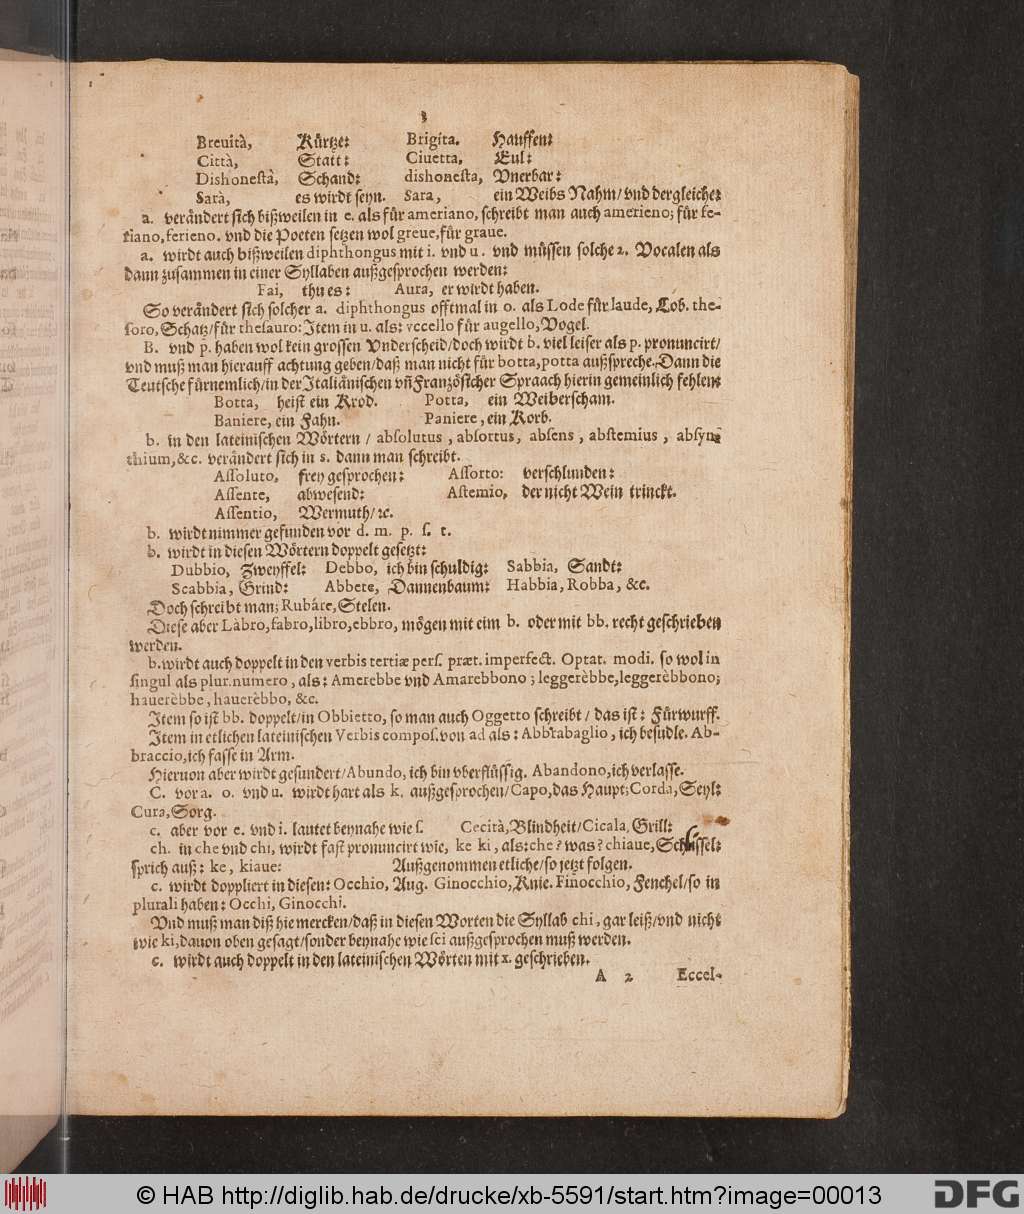 3
Breuità, Kürtze: Brigíta. Hauffen:
Città, Statt: Ciuetta, Eul:
Dishonestà, Schand: dishonesta, Vnerbar:
Sarà, es wirdt seyn. Sara, ein Weibs Nahm/ vnd dergleiche:
a. verändert sich bißweilen in e. als für ameriano, schreibt man auch amerieno; für fe-
riano, ferieno. vnd die Poeten setzen wol greue, für graue.
a. wirdt auch bißweilen diphthongus mit i. vnd u. vnd müssen solche 2. Vocalen als
dann zusammen in einer Syllaben außgesprochen werden:
Fai, thu es: Aura, er wirdt haben.
So verändert sich solcher a. diphthongus offtmal in o. als Lode für laude, Lob. the-
soro, Schatz/ für thesauro: Item in u. als: vccello für augello, Vogel.
B. vnd p. haben wol kein grossen Vnderscheid/ doch wirdt b. viel leiser als p. pronuncirt/
vnd muß man hierauff achtung geben/ daß man nicht für botta, potta außspreche. Dann die
Teutsche fürnemlich/ in der Italiänischen vñ Französischer Spraach hierin gemeinlich fehlen:
Botta, heist ein Krod. Potta, ein Weiberscham.
Baniere, ein Fahn. Paniere, ein Korb.
b. in den lateinischen Wörtern / absolutus, absortus, absens, abstemius, absyn-
thium, &c. verändert sich in s. dann man schreibt.
Assoluto, frey gesprochen: Assorto: verschlunden:
Assente, abwesend: Astemio, der nicht Wein trinckt.
Assentio, Wermuth/ ꝛc.
b. wirdt nimmer gefunden vor d. m. p. s. t.
b. wirdt in diesen Wörtern doppelt gesetzt:
Dubbio, Zweyffel: Debbo, ich bin schuldig: Sabbia, Sandt:
Scabbia, Grind: Abbete, Dannenbaum: Habbia, Robba, &c.
Doch schreibt man; Rubáre, Stelen.
Diese aber Làbro, fabro, libro, ebbro, mögen mit eim b. oder mit bb. recht geschrieben
werden.
b. wirdt auch doppelt in den verbis tertiæ pers. præt. imperfect. Optat. modi. so wol in
singul als plur. numero, als: Amerebbe vnd Amarebbono; leggerèbbe, leggerèbbono;
hauerèbbe, hauerèbbo, &c.
Item so ist bb. doppelt/ in Obbietto, so man auch Oggetto schreibt / das ist: Fürwurff.
Item in etlichen lateinischen Verbis compos. von ad als: Abbrabaglio, ich besudle. Ab-
braccio, ich fasse in Arm.
Hieruon aber wirdt gesundert/ Abundo, ich bin vberflüssig. Abandono, ich verlasse.
C. vor a. o. vnd u. wirdt hart als k. außgesprochen/ Capo, das Haupt; Corda, Seyl:
Cura, Sorg.
c. aber vor e. vnd i. lautet beynahe wie s. Cecità, Blindheit/ Cicala, Grill:
ch. in che vnd chi, wirdt fast pronuncirt wie, ke ki, als: che? was? chiaue, Schlüssel:
sprich auß: ke, kiaue: Außgenommen etliche/ so jetzt folgen.
c. wirdt doppliert in diesen: Occhio, Aug. Ginocchio, Knie. Finocchio, Fenchel/ so in
plurali haben: Occhi, Ginocchi.
Vnd muß man diß hie mercken/ daß in diesen Worten die Syllab chi, gar leiß/ vnd nicht
wie ki, dauon oben gesagt/ sonder beynahe wie sci außgesprochen muß werden.
c. wirdt auch doppelt in den lateinischen Wörten mit x. geschrieben.
A 2 Eccel-
© HAB http://diglib.hab.de/drucke/xb-5591/start.htm?image=00013
DFG